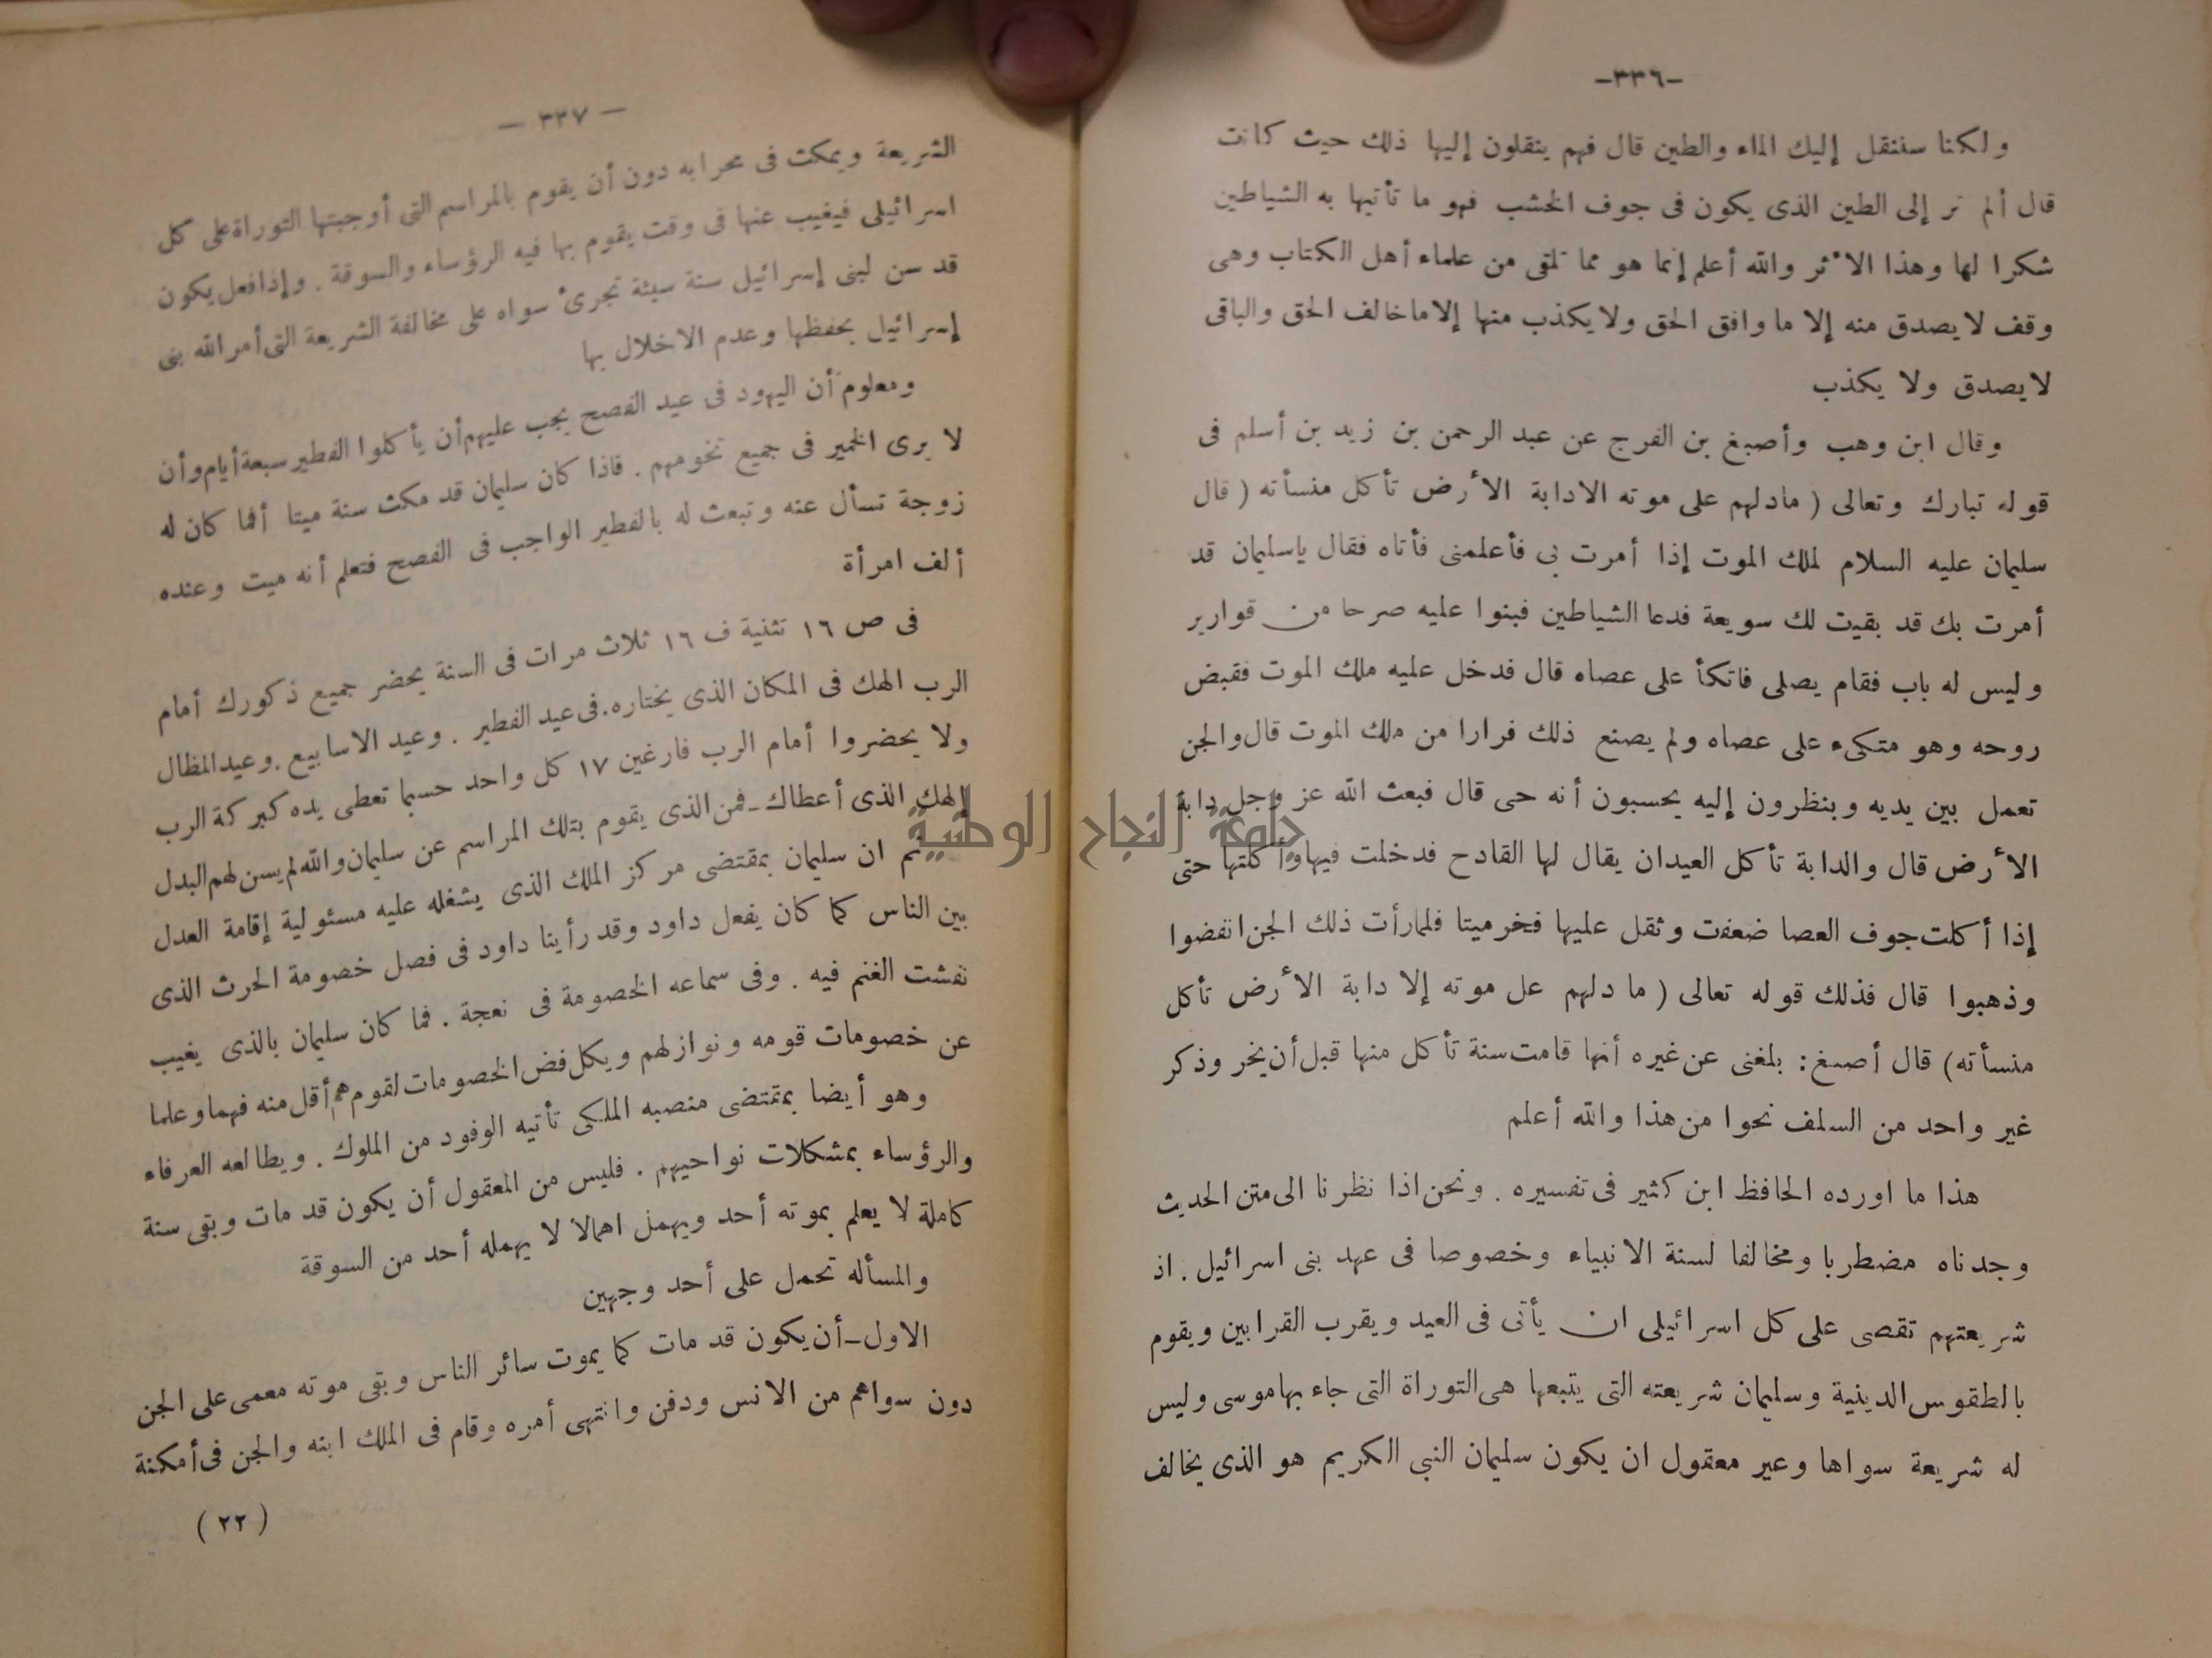 -٣٣٦-
ولكنا سننقل إليك الماء والطين قال فهم ينقلون إليها ذلك حيث كانت
قال ألم تر إلى الطين الذى يكون فى جوف الخشب فهو ما تأتيها به الشياطين
شكرا لها وهذا الأثر والله أعلم إنما هو مما تلقى من علماء أهل الكتاب وهى
وقف لا يصدق منه إلا ما وافق الحق ولا يكذب منها إلا ما خالف الحق والباقى
لا يصدق ولا يكذب
وقال ابن وهب وأصبغ بن الفرج عن عبد الرحمن بن زيد بن أسلم فى
قوله تبارك وتعالى ( مادلهم على موته الا دابة الأرض تأكل منسأته ( قال
سليمان عليه السلام لملك الموت إذا أمرت بى فأعلمنى فأتاه فقال ياسليمان قد
أمرت بك قد بقيت لك سويعة فدعا الشياطين فبنوا عليه صرحا من قوارير
وليس له باب فقام يصلى فاتكأ على عصاه قال فدخل عليه ملك الموت فقبض
روحه وهو متكىء على عصاه ولم يصنع ذلك فرارا من ملك الموت قال والجن
تعمل بين يديه وينظرون إليه يحسبون أنه حى قال فبعث الله عز وجل دابة
الأرض قال والدابة تأكل العيدان يقال لها القادح فدخلت فيها وأكلتها حتى
إذا أكلت جوف العصا ضعفت وثقل عليها فخر ميتا فلما رأت ذلك الجن انفضوا
وذهبوا قال فذلك قوله تعالى ( ما دلهم عل موته إلا دابة الأرض تأكل
منسأته) قال أصبغ: بلغنى عن غيره أنها قامت سنة تأكل منها قبل أن يخر وذكر
غير واحد من السلف نحوا من هذا والله أعلم
هذا ما اورده الحافظ ابن كثير فى تفسيره . ونحن اذا نظرنا الى متن الحديث
وجدناه مضطربا ومخالفا لسنة الانبياء وخصوصا فى عهد بنى اسرائيل . اذ
شريعتهم تقضى على كل اسرائيلى ان يأتى فى العيد ويقرب القرابين ويقوم
بالطقوس الدينية وسليمان شريعته التى يتبعها هى التوراة التى جاء بها موسى وليس
له شريعة سواها وغير معقول ان يكون سليمان النبى الكريم هو الذى يخالف
— ٣٣٧ —
الشريعة ويمكث فى محرابه دون أن يقوم بالمراسم التى أوجبتها التوراة على كل
اسرائيلى فيغيب عنها فى وقت يقوم بها فيه الرؤساء والسوقة . وإذا فعل يكون
قد سن لبنى إسرائيل سنة سيئة تجرىء سواه على مخالفة الشريعة التى أمر الله بنى
إسرائيل بحفظها وعدم الاخلال بها
ومعلوم أن اليهود فى عيد الفصح يجب عليهم أن يأكلوا الفطير سبعة أيام وأن
لا يرى الخمير فى جميع تخومهم . فاذا كان سليمان قد مكث سنة ميتا أفما كان له
زوجة تسأل عنه وتبعث له بالفطير الواجب فى الفصح فتعلم أنه ميت وعنده
ألف امرأة
فى ص ١٦ تثنية ف ١٦ ثلاث مرات فى السنة يحضر جميع ذكورك أمام
الرب الهك فى المكان الذى يختاره. فى عيد الفطير . وعيد الاسابيع . وعيد المظال
ولا يحضروا أمام الرب فارغين ١٧ كل واحد حسبما تعطى يده كبركة الرب
إلهك الذى أعطاك ــ فمن الذى يقوم بتلك المراسم عن سليمان والله لم يسن لهم البدل
ثم ان سليمان بمقتضى مركز الملك الذى يشغله عليه مسئولية إقامة العدل
بين الناس كما كان يفعل داود وقد رأينا داود فى فصل خصومة الحرث الذى
نفشت الغنم فيه . وفى سماعه الخصومة فى نعجة . فما كان سليمان بالذى يغيب
عن خصومات قومه ونوازلهم ويكل فض الخصومات لقوم هم أقل منه فهما وعلما
وهو أيضا بمقتضى منصبه الملكى تأتيه الوفود من الملوك . ويطالعه العرفاء
والرؤساء بمشكلات نواحيهم . فليس من المعقول أن يكون قد مات وبقى سنة
كاملة لا يعلم بموته أحد ويهمل اهمالا لا يهمله أحد من السوقة
والمسأله تحمل على أحد وجهين
الاول ــ أن يكون قد مات كما يموت سائر الناس وبقى موته معمى على الجن
دون سواهم من الانس ودفن وانتهى أمره وقام فى الملك ابنه والجن فى أمكنة
(٢٢)
جامعة النجاح الوطنية